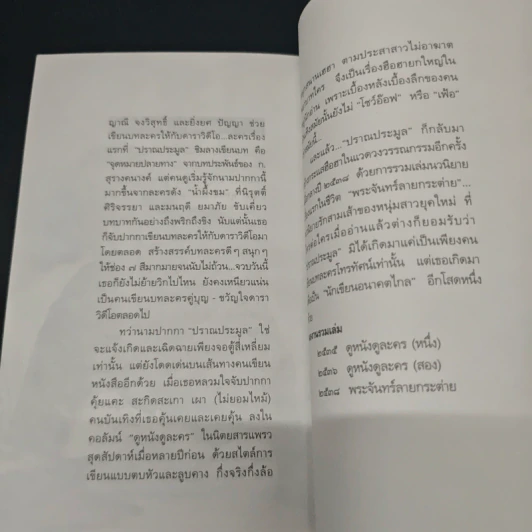 ญาณี จงวิสุทธิ์ และยิ่งยศ ปัญญา ช่วย
เขียนบทละครให้กับดาราวิดีโอ...ละครเรื่อง
แรกที่ "ปราณประมูล" ชิมลางเขียนบท คือ
"จุดหมายปลายทาง" จากบทประพันธ์ของ ก.
สุรางคนางค์ แต่คนดูเริ่มรู้จักนามปากกานี้
มากขึ้นจากละครดัง "น้ำผึ้งขม" ที่นิรุตติ์
ศิริจรรยา และ มนฤดี ยมาภัย ขับเคี่ยว
บทบาทกันอย่างถึงพริกถึงขิง นับแต่นั้นเธอ
ก็จับปากกาเขียนบทละครให้กับดาราวิดีโอมา
โดยตลอด สร้างสรรค์บทละครดีๆ สนุกๆ
ให้ช่อง ๗ สีมากมายจนนับไม่ถ้วน...จวบวันนี้
เธอก็ยังไม่ย้ายวิกไปไหน ยังคงเหนียวแน่น
เป็นคนเขียนบทละครคู่บุญ - ขวัญใจดารา
วิดีโอตลอดไป
ทว่านามปากกา "ปราณประมูล" ใช่
จะแจ้งเกิดและเฉิดฉายเพียงจอตู้สี่เหลี่ยม
เท่านั้น แต่ยังโดดเด่นบนเส้นทางคนเขียน
หนังสืออีกด้วย เมื่อเธอหลวมใจจับปากกา
คุ้ยแคะ สะกิดสะเกา เผา (ไม่ยอมไหม้)
คนบันเทิงที่เธอคุ้นเคยและเคยคุ้น ลงใน
คอลัมน์ "ดูหนังดูละคร" ในนิตยสารแพรว
สุดสัปดาห์เมื่อหลายปีก่อน ด้วยสไตล์การ
เขียนแบบตบหัวและลูบคาง กึ่งจริงกึ่งล้อ
เฮฮา ตามประสาสาวไม่อาฆาต
จึงเป็นเรื่องฮือฮายกใหญ่ใน
เพราะเบื้องหลังเบื้องลึกของคน
นั้นยังไม่ "โชว์อ๊อฟ" หรือ "เฟ้อ"
และแล้ว..."ปราณประมูล" ก็กลับมา
ฮือฮาในแวดวงวรรณกรรมอีกครั้ง
ปี ๒๕๓๘ ด้วยการรวมเล่มนวนิยาย
ในชีวิต "พระจันทร์ลายกระต่าย"...
รักสามเส้าของหนุ่มสาวยุคใหม่ ที่
ใครเมื่ออ่านแล้วต่างก็ยอมรับว่า
มิได้เกิดมาแค่เป็นเพียงคน
บทละครโทรทัศน์เท่านั้น แต่เธอเกิดมา
เป็น "นักเขียนอนาคตไกล" อีกโสดหนึ่ง
ผลงานรวมเล่ม
๒๕๓๕ ดูหนังดูละคร (หนึ่ง)
๒๕๓๖ ดูหนังดูละคร (สอง)
๒๕๓๘ พระจันทร์ลายกระต่าย